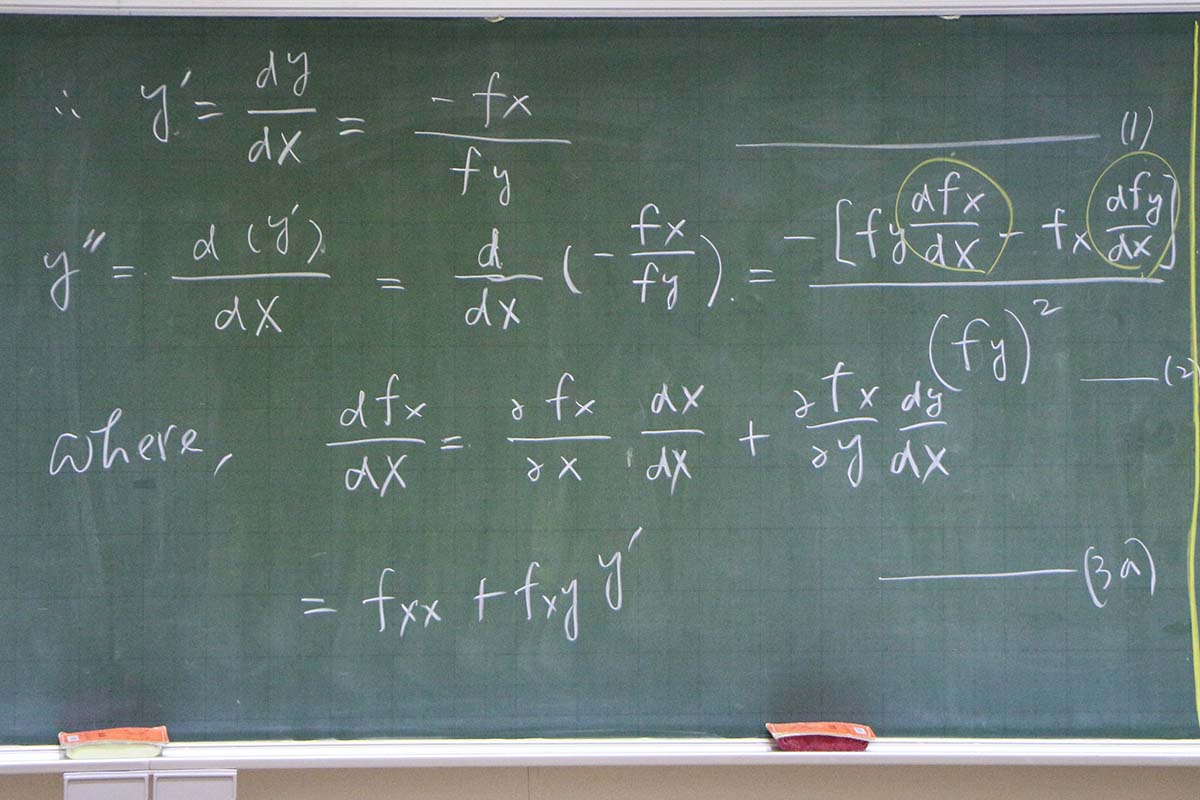 ∴ y' = dy/dx = -fx/fy ——— (1)
y'' = d(y')/dx = d/dx (-fx/fy) = -[fy dfx/dx - fx dfy/dx]/(fy)² —— (2)
where, dfx/dx = ∂fx/∂x · dx/dx + ∂fx/∂y dy/dx
= fxx + fxy y' ——— (3a)